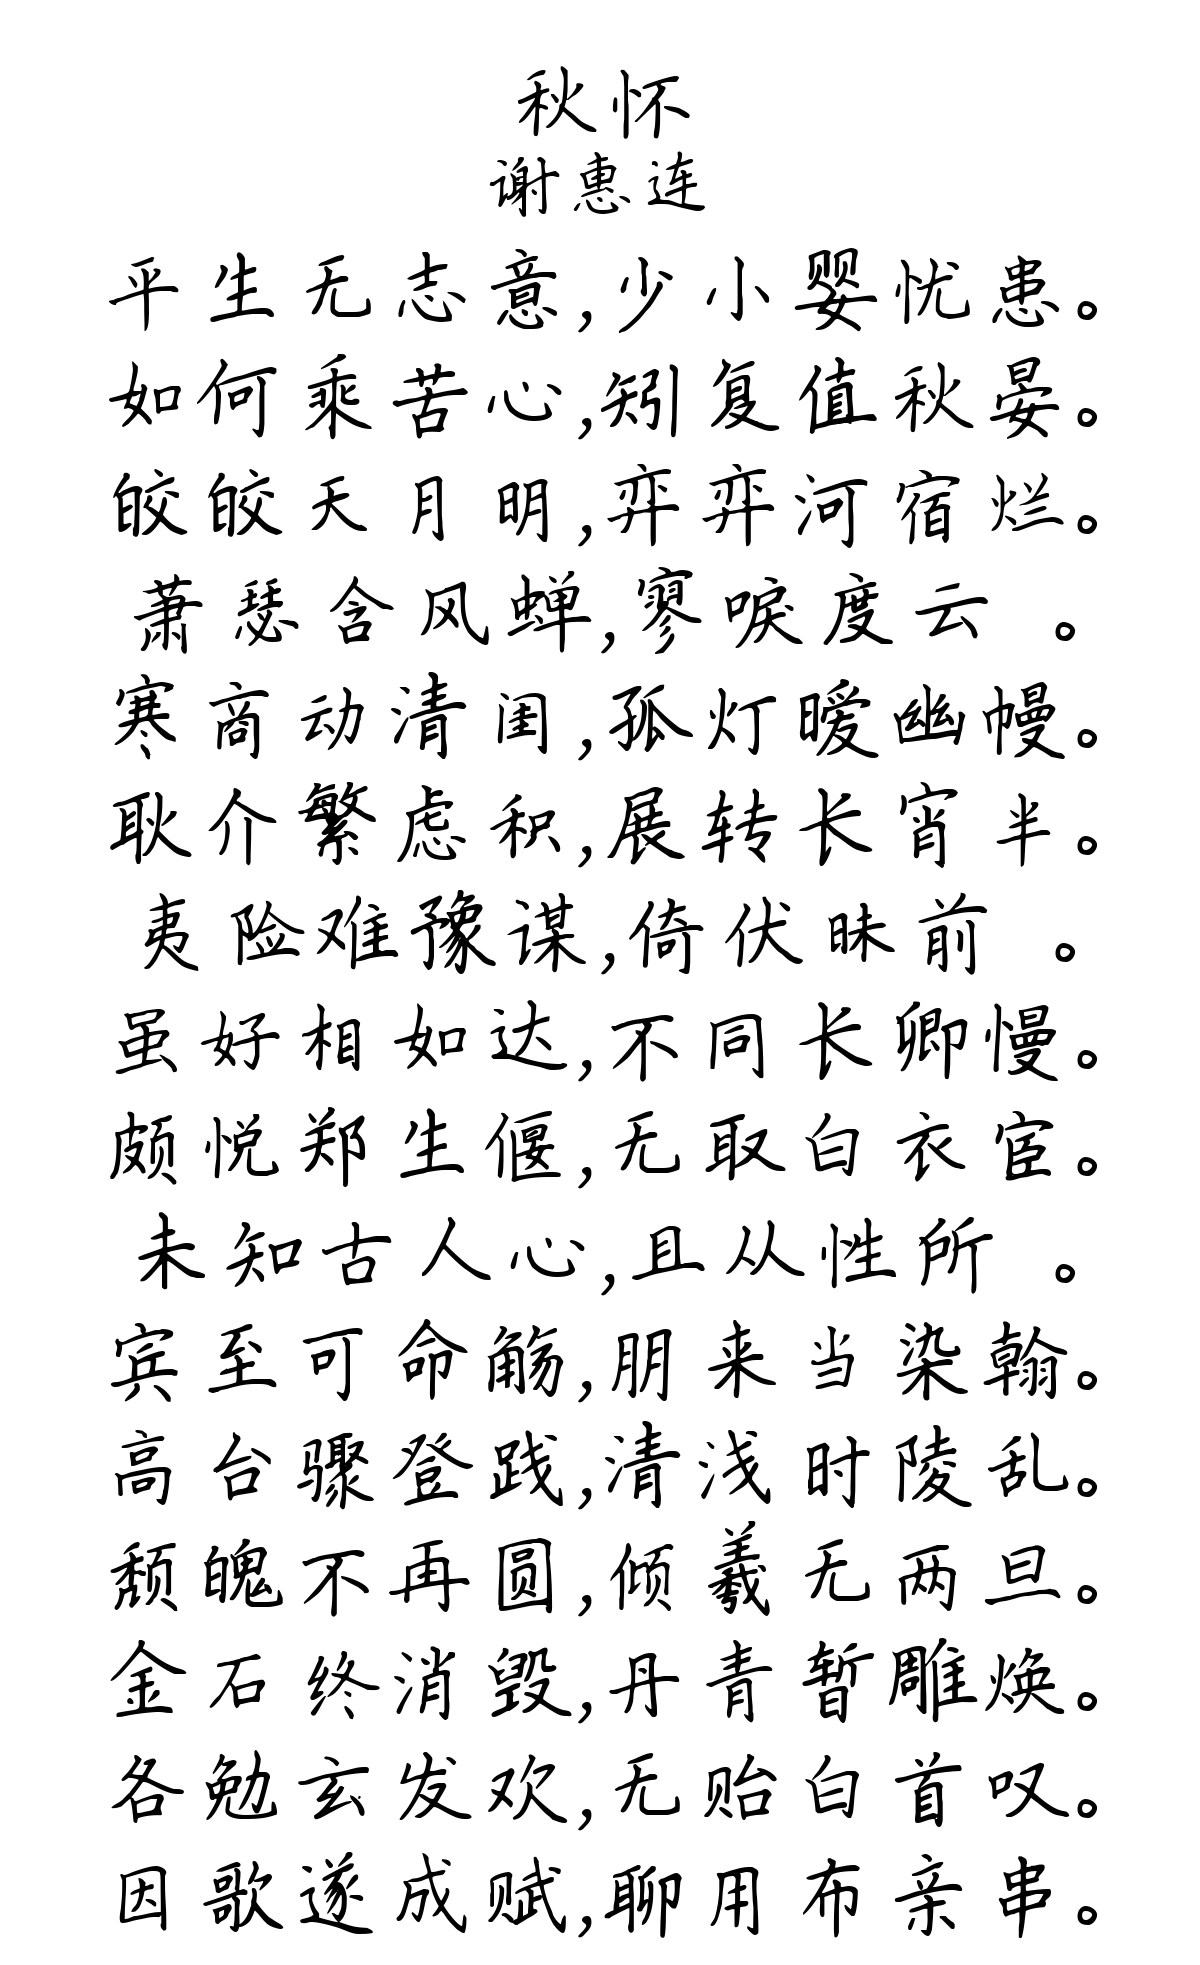 秋怀
谢惠连
平生无志意,少小婴忧患。
如何乘苦心,矧复值秋晏。
皎皎天月明,弈弈河宿烂。
萧瑟含风蝉,寥唳度云 。
寒商动清闺,孤灯暧幽幔。
耿介繁虑积,展转长宵半。
夷险难豫谋,倚伏昧前 。
虽好相如达,不同长卿慢。
颇悦郑生偃,无取白衣宦。
未知古人心,且从性所 。
宾至可命觞,朋来当染翰。
高台骤登践,清浅时陵乱。
颓魄不再圆,倾羲无两旦。
金石终消毁,丹青暂雕焕。
各勉玄发欢,无贻白首叹。
因歌遂成赋,聊用布亲串。